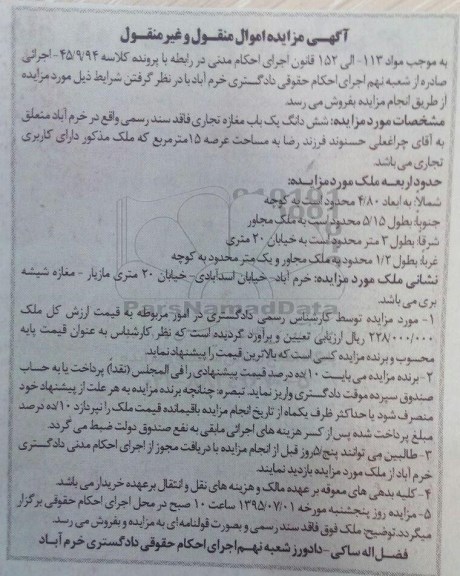 آگهی مزایده اموال منقول و غیر منقول
به موجب مواد ۱۱۳- الی ۱۵۲ قانون اجرای احکام مدنی در رابطه با پرونده کلاسه ۴۵/۹/۹۴- اجرائی
صادره از شعبه نهم اجرای احکام حقوقی دادگستری خرم آباد با در نظر گرفتن شرایط ذیل مورد مزایده
از طریق انجام مزایده بفروش می رسد.
مشخصات مورد مزایده: شش دانگ یک باب مغازه تجاری فاقد سند رسمی واقع در خرم آباد متعلق
به آقای چراغعلی حسنوند فرزند رضا به مساحت عرصه ۱۵ مترمربع که ملک مذکور دارای کاربری
تجاری می باشد.
حدود اربعه ملک مورد مزایده:
شمالا: به ابعاد ۴/۸۰ محدود است به کوچه
جنوبا: بطول ۵/۱۵ محدود است به ملک مجاور
شرقا: بطول ۳ متر محدود است به خیابان ۲۰ متری
غربا: بطول ۱/۲ محدود به ملک مجاور و یک متر محدود به کوچه
نشانی ملک مورد مزایده: خرم آباد- خیابان اسدآبادی- خیابان ۲۰ متری مازیار - مغازه شیشه
بری می باشد.
۱- مورد مزایده توسط کارشناس رسمی دادگستری در امور مربوطه به قیمت ارزش کل ملک
۲۲۸/۰۰۰/۰۰۰ ریال ارزیابی تعیین و برآورد گردیده است که نظر کارشناس به عنوان قیمت پایه
محسوب و برنده مزایده کسی است که بالاترین قیمت را پیشنهاد نماید.
۲- برنده مزایده می بایست ۱۰/ده درصد قیمت پیشنهادی را فی المجلس (نقدا) پرداخت یا به حساب
صندوق سپرده موقت دادگستری واریز نماید. تبصره: چنانچه برنده مزایده به هر علت از پیشنهاد خود
منصرف شود یا حداکثر ظرف یکماه از تاریخ انجام مزایده باقیمانده قیمت ملک را نپردازد ۱۰/ده درصد
مبلغ پرداخت شده پس از کسر هزینه های اجرائی مابقی به نفع صندوق دولت ضبط می گردد.
۳- طالبین می توانند پنج/۵روز قبل از انجام مزایده با دریافت مجوز از اجرای احکام مدنی دادگستری
خرم آباد از ملک مورد مزایده بازدید نمایند.
۴- کلیه بدهی های معوقه بر عهده مالک و هزینه های نقل و انتقال بر عهده خریدار می باشد.
۵- مزایده روز پنجشنبه مورخه ۱۳۹۵/۰۷/۰۱ ساعت ۱۰ صبح در محل اجرای احکام حقوقی برگزار
میگردد.توضیح: ملک فوق فاقد سند رسمی و بصورت قولنامه ای به مزایده و بفروش می رسد.
فضل اله ساکی- دادورز شعبه نهم اجرای احکام حقوقی دادگستری خرم آباد
ParsNamadData